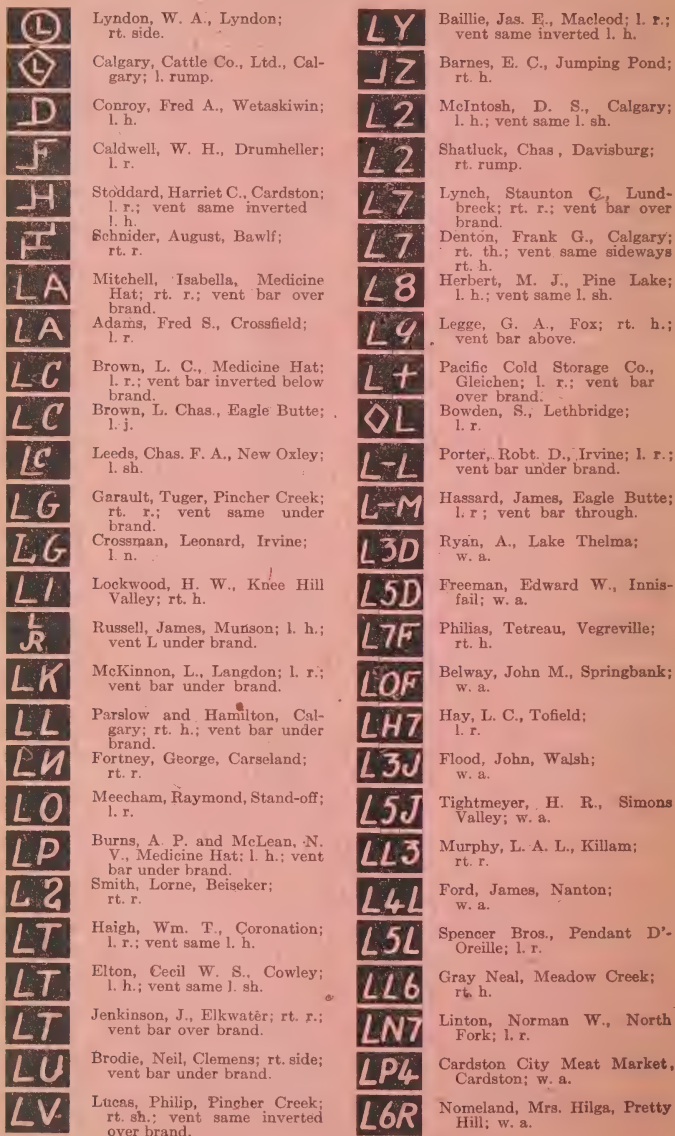 L Lyndon, W. A., Lyndon;
rt. side.
L Calgary, Cattle Co., Ltd., Cal-
gary; l. rump.
Conroy, Fred A., Wetaskiwin;
l. h.
Caldwell, W. H., Drumheller;
l. r.
Stoddard, Harriet C., Cardston;
l. r.; vent same inverted
l. h.
Schnider, August, Bawlf;
rt. r.
LA Mitchell, Isabella, Medicine
Hat; rt. r.; vent bar over
brand.
LA Adams, Fred S., Crossfield;
l. r.
LC Brown, L. C., Medicine Hat;
l. r.; vent bar inverted below
brand.
LC Brown, L. Chas., Eagle Butte;
l. j.
LC Leeds, Chas. F. A., New Oxley;
l. sh.
LG Garault, Tuger, Pincher Creek;
rt. r.; vent same under
brand.
LG Crossman, Leonard, Irvine;
l. n.
LI Lockwood, H. W., Knee Hill
Valley; rt. h.
L R Russell, James, Munson; l. h.;
vent L under brand.
LK McKinnon, L., Langdon; l. r.;
vent bar under brand.
LL Parslow and Hamilton, Cal-
gary; rt. h.; vent bar under
brand.
LN Fortney, George, Carseland;
rt. r.
LO Meecham, Raymond, Stand-off;
l. r.
LP Burns, A. P. and McLean, N.
V., Medicine Hat; l. h.; vent
bar under brand.
Smith, Lorne, Beiseker;
rt. r.
LT Haigh, Wm. T., Coronation;
l. r.; vent same l. h.
LT Elton, Cecil W. S., Cowley;
l. h.; vent same l. sh.
LT Jenkinson, J., Elkwater; rt. r.;
vent bar over brand.
LU Brodie, Neil, Clemens; rt. side;
vent bar under brand.
LV Lucas, Philip, Pincher Creek;
rt. sh.; vent same inverted
over brand.
LY Baillie, Jas. E., Macleod; l. r.;
vent same inverted l. h.
JZ Barnes, E. C., Jumping Pond;
rt. h.
L2 McIntosh, D. S., Calgary;
l. h.; vent same l. sh.
L2 Shatluck, Chas, Davisburg;
rt. rump.
L7 Lynch, Staunton C., Lund-
breck; rt. r.; vent bar over
brand.
L7 Denton, Frank G., Calgary;
rt. th.; vent same sideways
rt. h.
L8 Herbert, M. J., Pine Lake;
l. h.; vent same l. sh.
L9 Legge, G. A., Fox; rt. h.;
vent bar above.
L+ Pacific Cold Storage Co.,
Gleichen; l. r.; vent bar
over brand.
◊L Bowden, S., Lethbridge;
l. r.
L-L Porter, Robt. D., Irvine; l. r.;
vent bar under brand.
L-M Hassard, James, Eagle Butte;
l. r ; vent bar through.
L3D Ryan, A., Lake Thelma;
w. a.
L5D Freeman, Edward W., Innis-
fail; w. a.
L7F Philias, Tetreau, Vegreville;
rt. h.
LOF Belway, John M., Springbank;
w. a.
LH7 Hay, L. C., Tofield;
l. r.
L3J Flood, John, Walsh;
w. a.
L5J Tightmeyer, H. R., Simons
Valley; w. a.
LL3 Murphy, L. A. L., Killam;
rt. r.
L4L Ford, James, Nanton;
w. a.
L5L Spencer Bros., Pendant D'-
Oreille; l. r.
LL6 Gray Neal, Meadow Creek;
rt. h.
LN7 Linton, Norman W., North
Fork; l. r.
LP4 Cardston City Meat Market,
Cardston; w. a.
L6R Nomeland, Mrs. Hilga, Pretty
Hill; w. a.